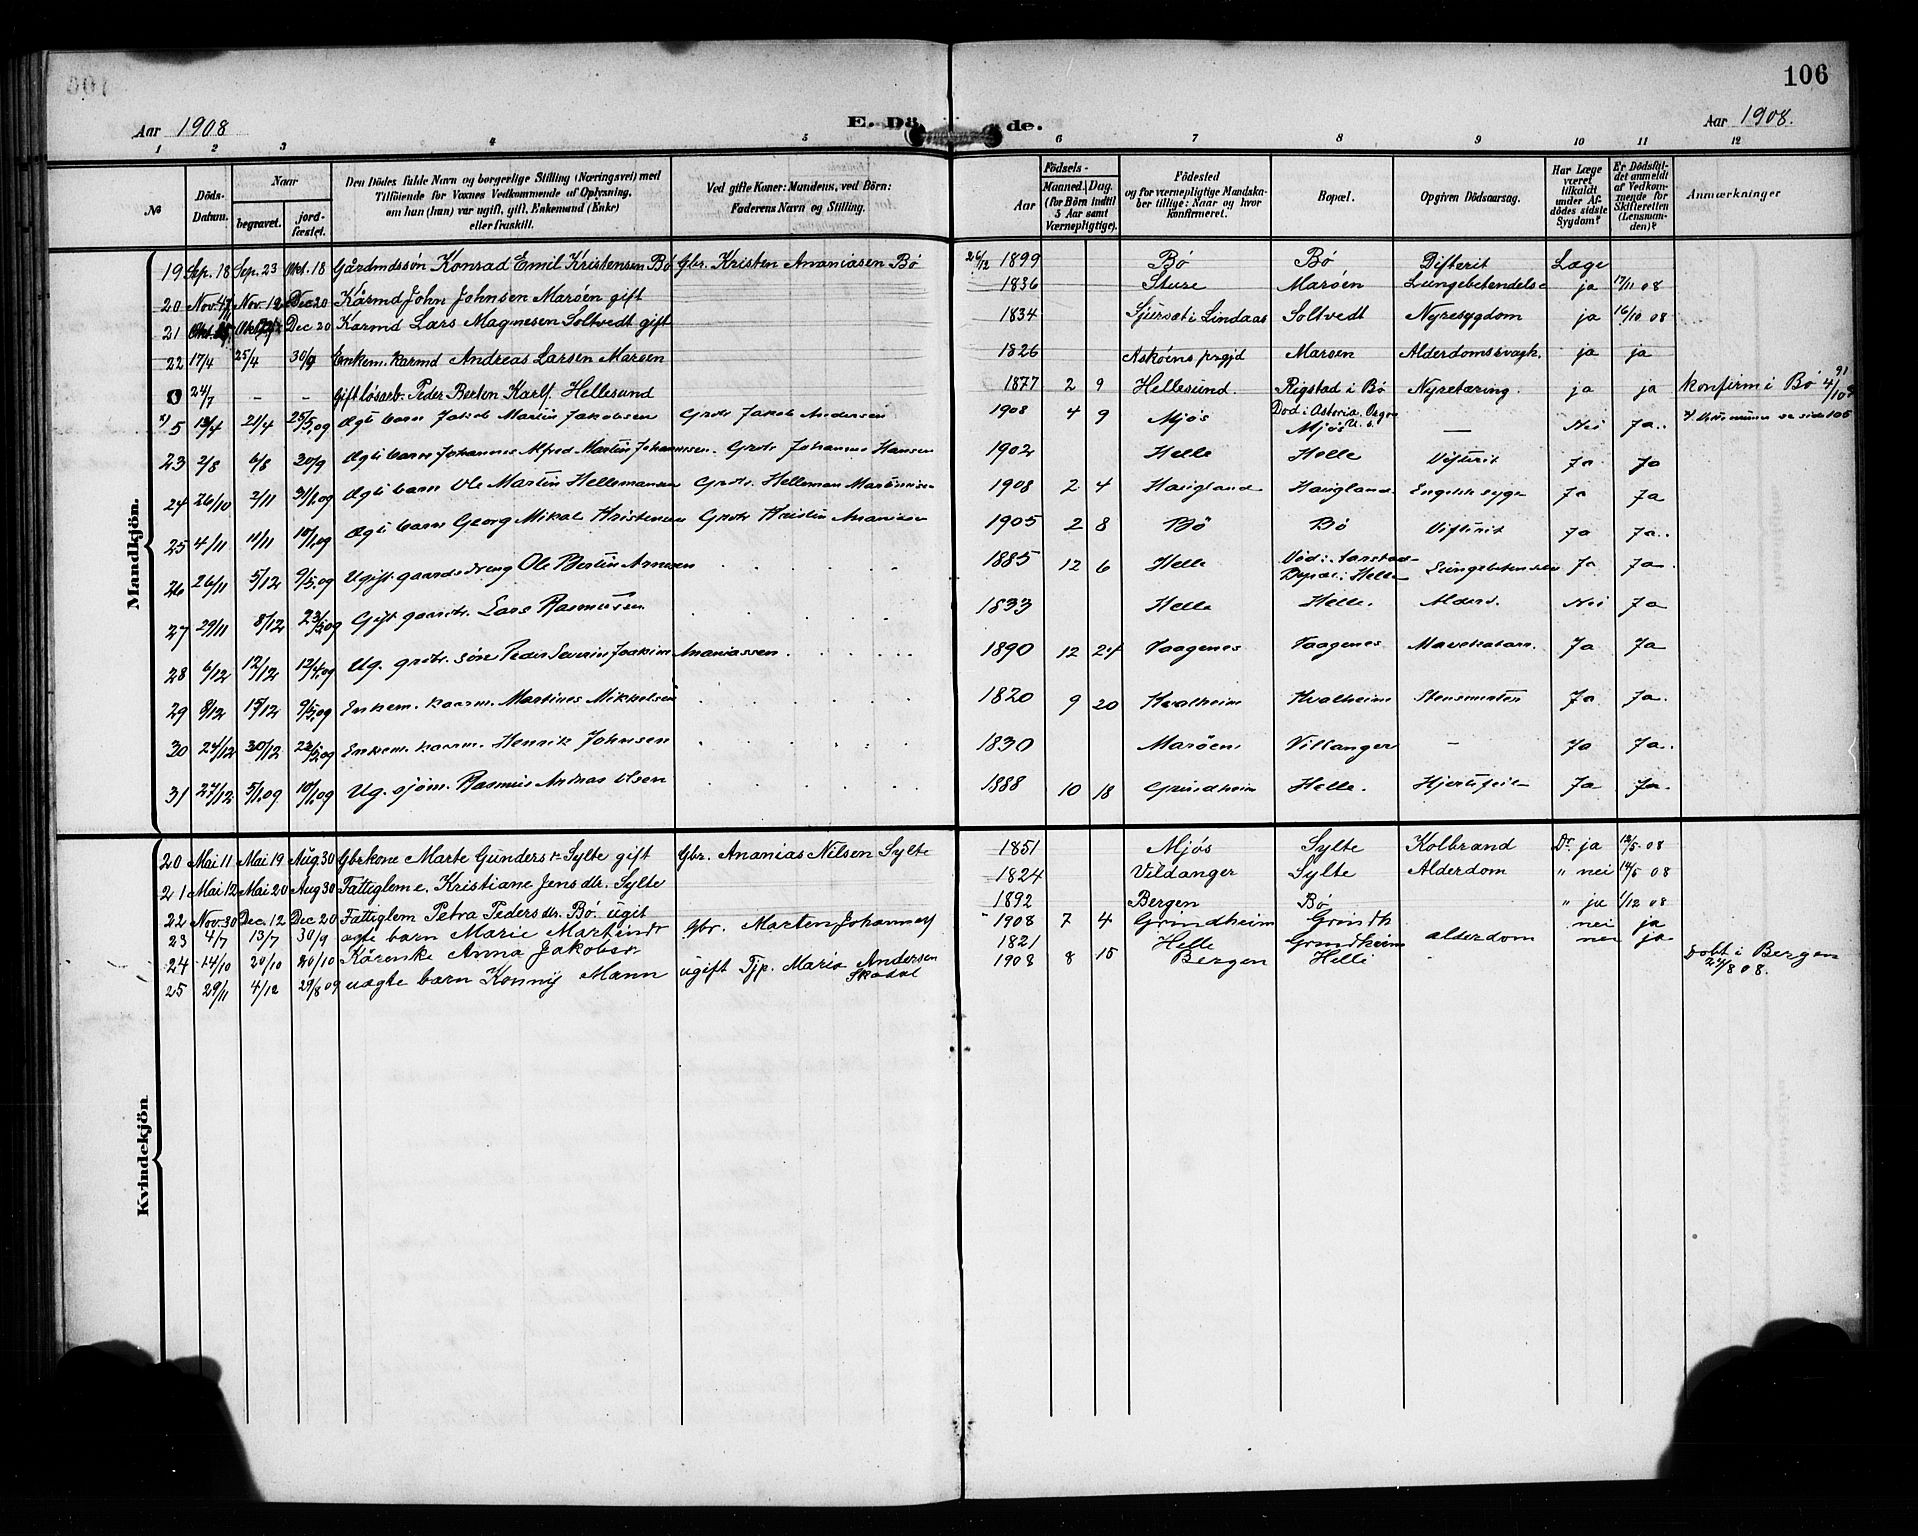 106
Aar 1908
E. Dö de.
Aar 1908.
1 2 3 4 5 6 7 8 9 10 11 12
No
Döds-Datum.
Naar
begravet.
jord-fæstet.
Den Dödes fulde Navn og borgerlige Stilling (Næringsvei) med
Tilföiende for Voxnes Vedkommende af Oplysning,
om hun (han) var ugift, gift, Enkemand (Enke)
eller fraskilt.
Ved gifte Koner: Mandens, ved Börn:
Faderens Navn og Stilling.
Födsels-
Aar
Maaned. Dag.
(for Börn indtil
5 Aar samt
Værnepligtige).
Födested
og for værnepligtige Mandska-
ber tillige: Naar og hvor
konfirmeret.
Bopæl.
Opgiven Dödsaarsag.
Har Læge
været
tilkaldt
under Af-
dödes sidste
Sygdom?
Er Dödsfal-
det anmeldt
af Vedkom-
mende for
Skifteretten
(Lensman-
den)?
Anmærkninger
Mandkjön.
19 Sep. 18 Sep. 23 Okt. 18 Gårdmdssön Konrad Emil Kristensen Bø Gbr. Kristen Ananiasen Bø 26/12 1899 Bø Bø Difterit Læge
20 Nov. Nov. 12 Dec 20 Kårmd John Johnsen Marøen gift 1836 Sture Marøen Lungebetendelse ja 17/11 08
21 Dec 20 Kårmd Lars Magnesen Soltvedt gift 1834 i Lindaas Soltvedt Nyresygdom ja 16/10 08
22 17/4 25/4 30/9 Enkem. karmd Andreas Larsen Marøen 1826 Askøens prgjd Marøen Alderdomssvagh. ja ja
0 24/7 - - Gift løsarb. Peder Berten Karls. Hellesund 1877 2 9 Hellesund. Rigstad i Bø Nyretæring. ja ja konfirm i Bø 4/10 91
5 13/4 21/4 25/5 09 Ægte barn Jakob Martin Jakobsen Grdbr Jakob Andersen 1908 4 9 Mjøs Død i Astoria, Oregon U.S. Mjøs — Nei Ja. se side 105
23 2/8 6/8 30/9 Ægte barn Johannes Alfred Martin Johannessen. Grdbr Johannes Hansen 1902 Helle Helle Difterit Ja Ja
24 26/10 2/11 31/1 09 Ægte barn Ole Martin Hellemansen Grdbr Helleman Martinusen 1908 2 4 Haugland Haugland. Engelsk syge Ja Ja
25 4/11 11/11 10/1 09 Ægte barn Georg Mikal Kristensen Grdbr Kristen Ananiasen 1905 2 8 Bø Bø Difterit Ja Ja..
26 26/11 5/12 9/5 09 Ugift gaardsdreng Ole Bertin Arnesen 1885 12 6 Helle Død i: Aarstad Bopæl: Helle Lungebetændelse Ja Ja
27 29/11 8/12 23/5 09 Gift gaardbr. Lars Rasmussen 1833 Helle Helle. Alderd. Nei Ja
28 6/12 12/12 12/4 09 Ug. grdbr. søn Peder Severin Joakim Ananiassen 1890 12 24 Vaagenes Vaagenes Mavekatarr. Ja Ja
29 8/12 15/12 9/5 09 Enkem. kaarm. Martines Mikkelsen 1820 9 20 Kvalheim Kvalheim Stensmerter Ja Ja.
30 24/12 30/12 23/5 09 Enkem. kaarm. Henrik Johnsen 1830 Marøen Villanger — Ja Ja.
31 27/12 5/1 09 10/1 09 Ug. sjøm. Rasmus Andreas Olsen 1888 10 18 Grindheim Helle. Hjertefeil Ja Ja.
Kvindekjön
20 Mai 11 Mai 19 Aug 30 Gbrkone Marte Gundersdr. Sylte gift Gbr. Ananias Nilsen Sylte 1851 Mjøs Sylte Kolbrand Dr. ja 12/5 08
21 Mai 12 Mai 20 Aug 30 Fattiglem e. Kristiane Jensdtr. Sylte 1824 Vildanger Sylte Alderdom " nei 14/5 08
22 Nov. 30 Dec. 12 Dec 20 Fattiglem Petra Pedersdtr. Bø. ugit 1892 Bergen Bø " ja 1/12 08
23 4/7 13/7 30/9 ægte barn Marie Martindr Gbr. Marten Johannes 1908 7 4 Grindheim Grindh nei ja
24 14/10 20/10 20/10 Kårenke Anna Jakobsdr 1821 Helle Grindheim alderdom nei ja
25 29/11 4/12 29/8 09 uægte barn Konny Mann ugift Tjp. Maria Andersen Skodal 1908 8 15 Bergen Helle - Døbt i Bergen 24/8 08.